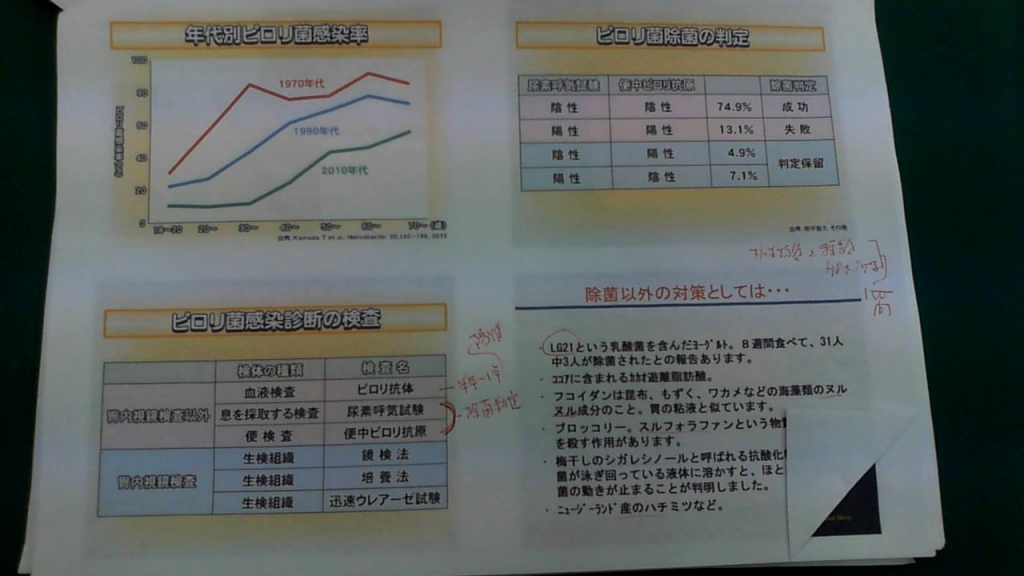 年代別ピロリ菌感染率
100
80
60
40
20
0
1970年代
1990年代
2010年代
20〜
30〜
40〜
50〜
60〜
70〜(歳)
ピロリ菌除菌の判定
尿素呼気試験 便中ピロリ抗原 除菌判定
陰性 陰性 74.9% 成功
陽性 陽性 13.1% 失敗
陰性 陽性 4.9% 判定保留
陽性 陰性 7.1%
ピロリ菌感染診断の検査
検体の種類 検査名
胃内視鏡検査以外
血液検査 ピロリ抗体
息を採取する検査 尿素呼気試験
便検査 便中ピロリ抗原
胃内視鏡検査
生検組織 鏡検法
生検組織 培養法
生検組織 迅速ウレアーゼ試験
除菌以外の対策としては・・・
・ LG21という乳酸菌を含んだﾖｰｸﾞﾙﾄ。8週間食べて、31人
中3人が除菌されたとの報告あります。
・ ｺｺｱに含まれるｶｶｵ遊離脂肪酸。
・ フコイダンは昆布、もずく、ワカメなどの海藻類のヌル
ヌル成分のこと。胃の粘液と似ています。
・ ブロッコリー。スルフォラファンという物
を殺す作用があります。
・ 梅干しのシガレシノールと呼ばれる抗酸化
菌が泳ぎ回っている液体に溶かすと、ほと
菌の動きが止まることが判明しました。
・ ﾆｭｰｼﾞｰﾗﾝﾄﾞ産のハチミツなど。